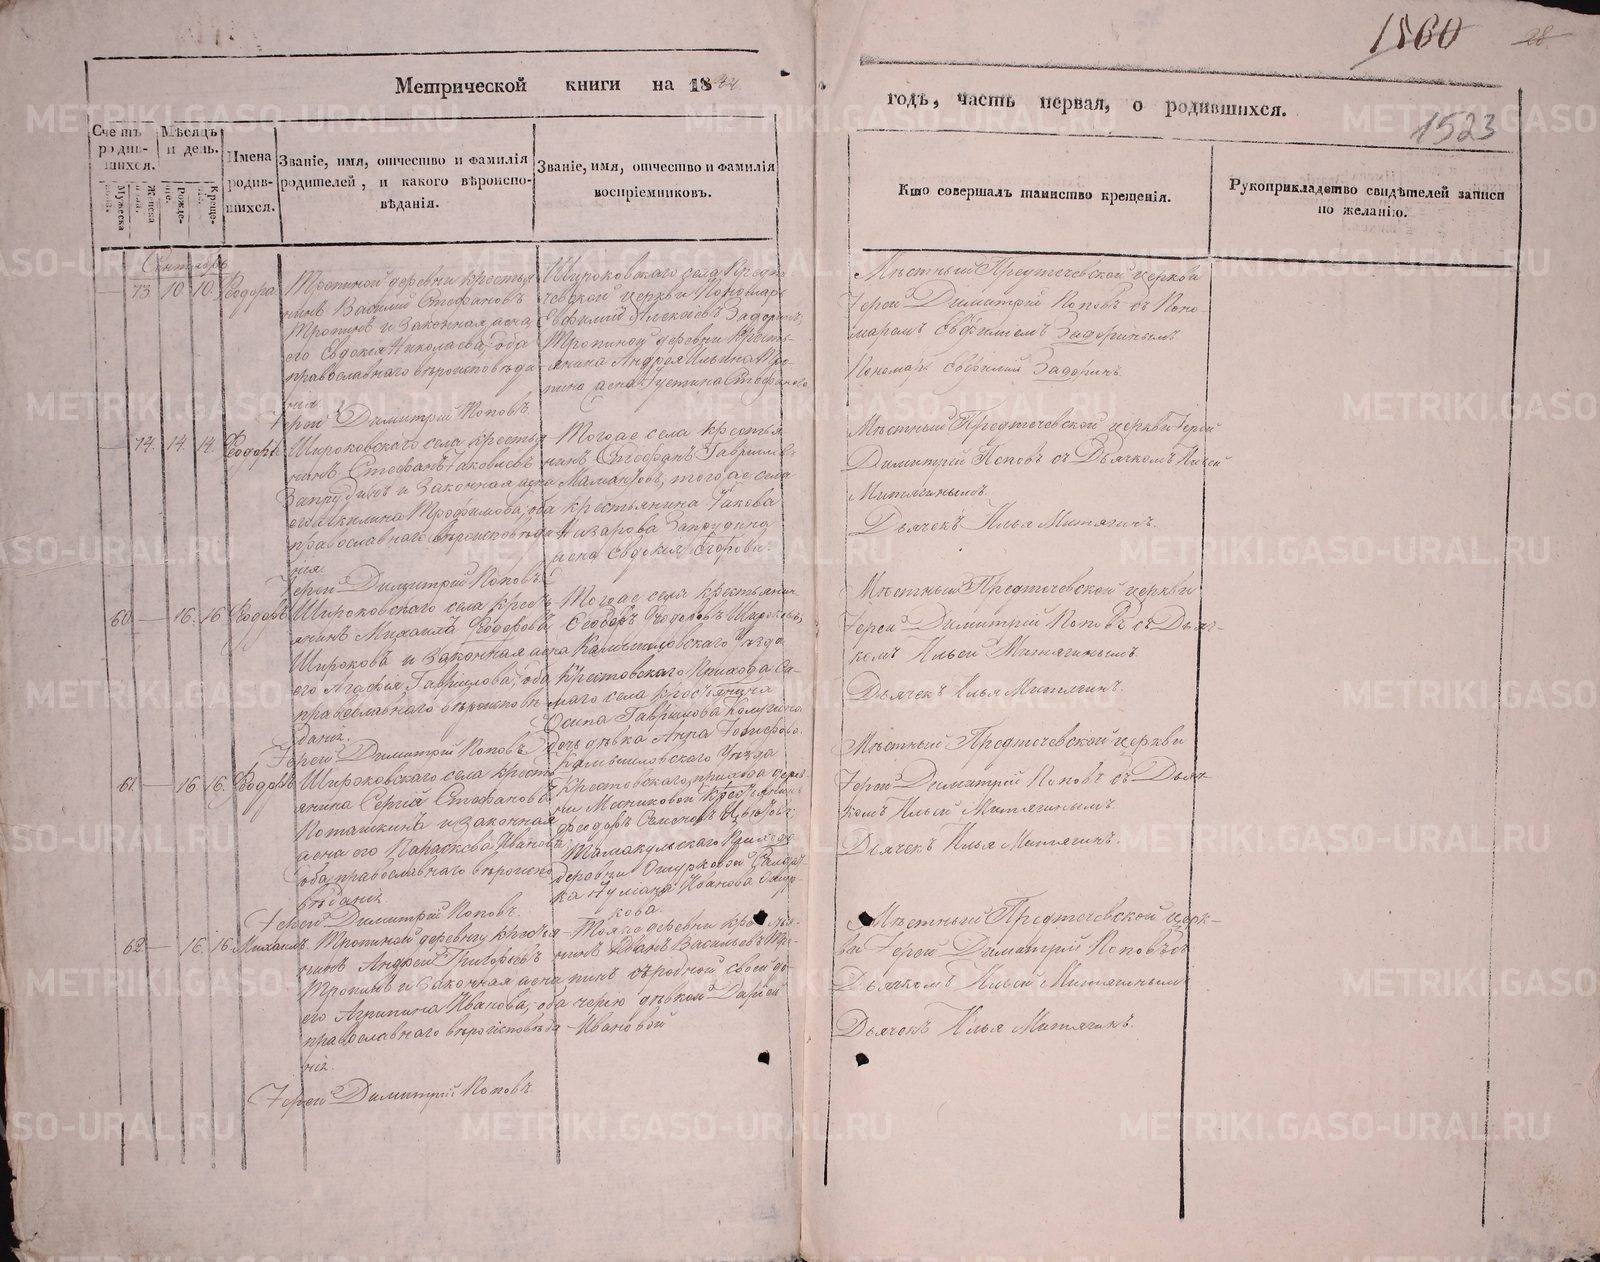 1560
28
1523
Метрической книги на 1844
годъ, часть первая, о родившихся.
Счетъ родившихся.
Мѣсяцъ и день.
Имена родившихся.
Званіе, имя, отчество и фамилія родителей, и какого вѣроисповѣданія.
Званіе, имя, отчество и фамилія воспріемниковъ.
Кто совершалъ таинство крещенія.
Рукоприкладство свидѣтелей записи по желанію.
Мужеска
Женска
Рожденіе.
Крещеніе.
Сентябрь
73 10. 10.
Тропиной деревни крестья
нинъ Василий Стефановъ
Тропинъ и Законная жена
его Евдокія Николаева, оба
православнаго вѣроисповѣда
нія
Іерей Димитрий Поповъ.
Широковскаго села Предте
чевской церкви Пономарь
Евфимий Алексѣевъ Задоринъ,
Тропиной деревни кресть
янина Андрея Ильина Тро
пина жена Устина Стефанова
Мѣстный Предтечевской церкви
Іерей Димитрий Поповъ съ Поно
маремъ Евфимиемъ Задоринымъ
Пономарь Евфимий Задоринъ.
74. 14. 14.
Широковскаго села крестья
нинъ Стефанъ Яковлевъ
Запрудинъ и Законная жена
его Акилина Трофимова, оба
православнаго вѣроисповѣда
нія.
Іерей Димитрий Поповъ.
Тогоже села крестья
нинъ Стефанъ Гавриловъ
тогоже села
крестьянина Якова
Назарова Запрудина
жена Евдокія Егорова.
Мѣстный Предтечевской церкви Іерей
Димитрий Поповъ съ Дьячкомъ Ильей
Митягинымъ.
Дьячекъ Илья Митягинъ.
60. 16. 16 Ѳеодоръ
Широковскаго села кресть
янинъ Михаилъ Ѳеодоровъ
Широковъ и Законная жена
его Агафья Гаврилова, оба
православнаго вѣроисповѣ
данія.
Іерей Димитрий Поповъ
Тогоже села крестьянин
Ѳеодоръ Ѳедоровъ Широковъ,
Камышловскаго Уѣзда
Крестовскаго Прихода са
маго села крестьянина
Осипа Гаврилова
дочь дѣвка Анна
Мѣстный Предтечевской церкви
Іерей Димитрий Поповъ съ Дьяч
комъ Ильей Митягинымъ.
Дьячекъ Илья Митягинъ.
61. 16 16. Ѳеодоръ
Широковскаго села кресть
янина Сергий Стефановъ
Поташкинъ и законная
жена его Параскева Иванова
оба православнаго вѣроиспо
вѣданія
Іерей Димитрий Поповъ.
Камышловскаго Уѣзда
Крестовскаго прихода дерев
ни крестьянинъ
Ѳеодоръ Семеновъ
Тамакульскаго Прихода
деревни Ошурковой
Иванова Ошур
кова.
Мѣстный Предтечевской церкви
Іерей Димитрий Поповъ съ Дьяч
комъ Ильей Митягинымъ.
Дьячекъ Илья Митягинъ.
62 16. 16 Михаилъ
Тропиной деревни крестья
нинъ Андрей Григорьевъ
Тропинъ и Законная жена
его Агрипина Иванова, оба
православнаго вѣроисповѣда
нія.
Іерей Димитрий Поповъ.
Тояже деревни крестья
нинъ Иванъ Васильевъ Тро
пинъ съ родной своей до
черью дѣвкой Дарьей
Ивановой
Мѣстный Предтечевской церк
ви Іерей Димитрий Поповъ съ
Дьячкомъ Ильей Митягинымъ
Дьячекъ Илья Митягинъ.
METRIKI.GASO-URAL.RU